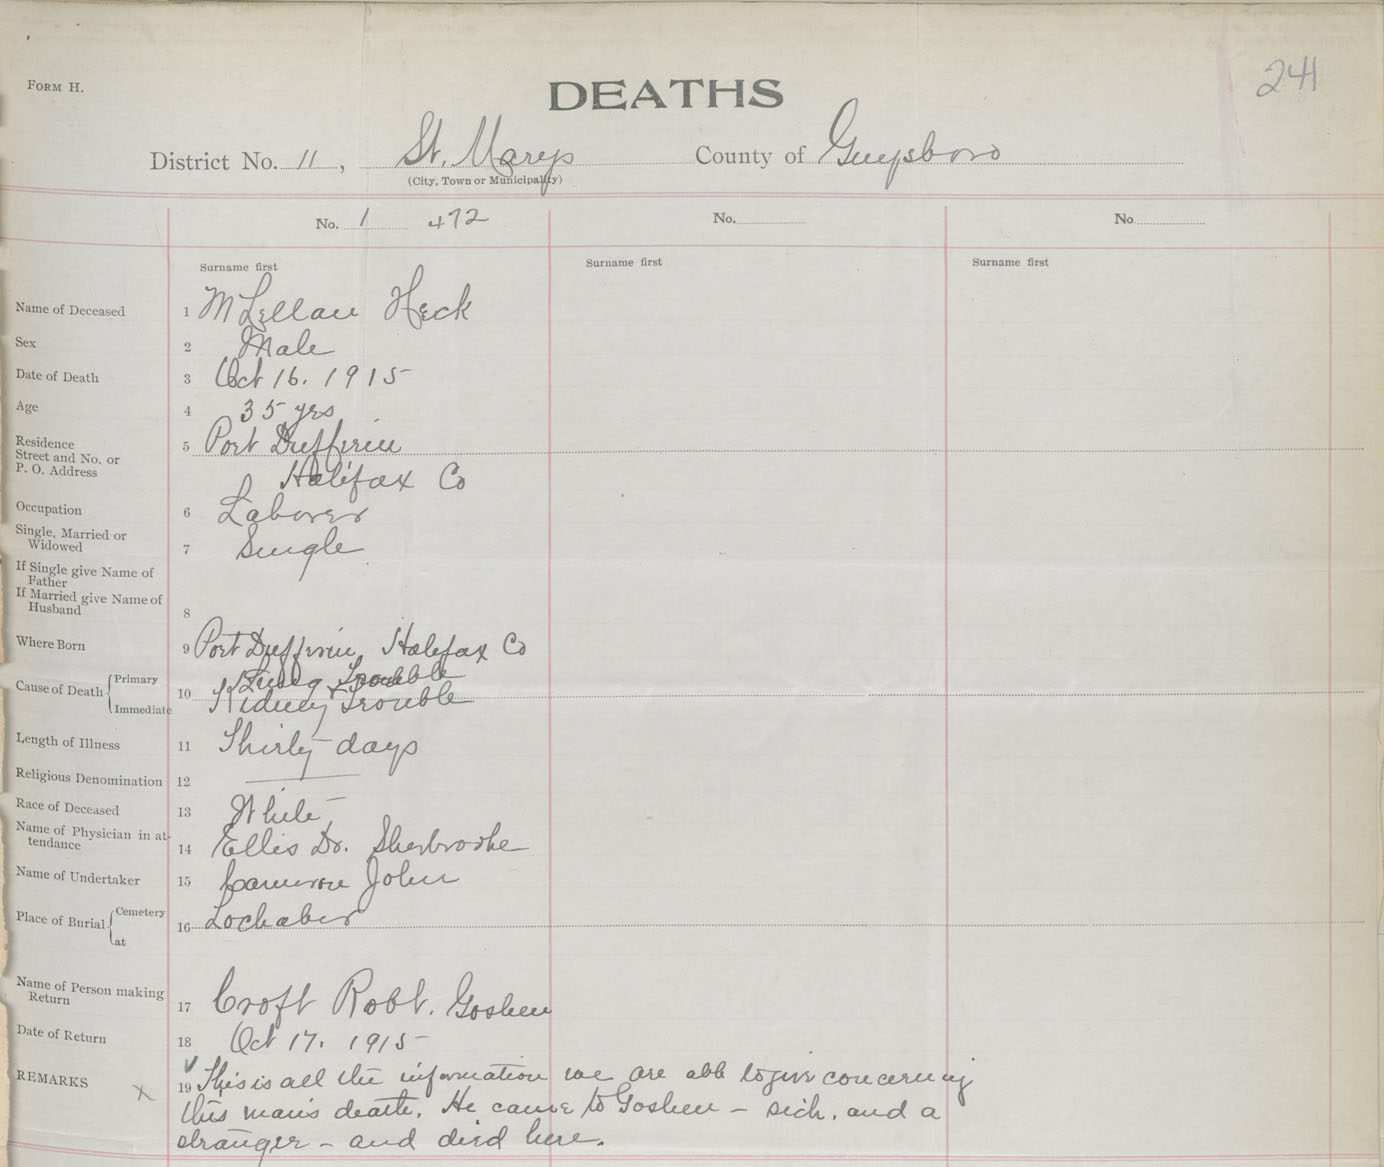 FORM H.
DEATHS
241
District No. 11, St. Marys County of Guysboro
(City, Town or Municipality)
No. 1 472 No. No.
Surname first Surname first Surname first
Name of Deceased 1 McLellan Heck
Sex 2 Male
Date of Death 3 Oct 16. 1915
Age 4 35 yrs
Residence
Street and No. or 5 Port Dufferin
P. O. Address
Halifax Co
Occupation 6 Laborer
Single, Married or
Widowed 7 Single
If Single give Name of
Father
If Married give Name of
Husband 8
Where Born 9 Port Dufferin Halifax Co
Cause of Death Primary Lung Trouble
Immediate 10 Kidney Trouble
Length of Illness 11 Thirty days
Religious Denomination 12
Race of Deceased 13 White
Name of Physician in at-
tendance 14 Ellis Dr. Sherbrooke
Name of Undertaker 15 Cameron John
Place of Burial Cemetery 16 Lochaber
at
Name of Person making
Return 17 Croft Robt. Goshen
Date of Return 18 Oct 17. 1915
REMARKS x 19 This is all the information we are able to give concerning
this man's death. He came to Goshen - sick, and a
stranger - and died here.